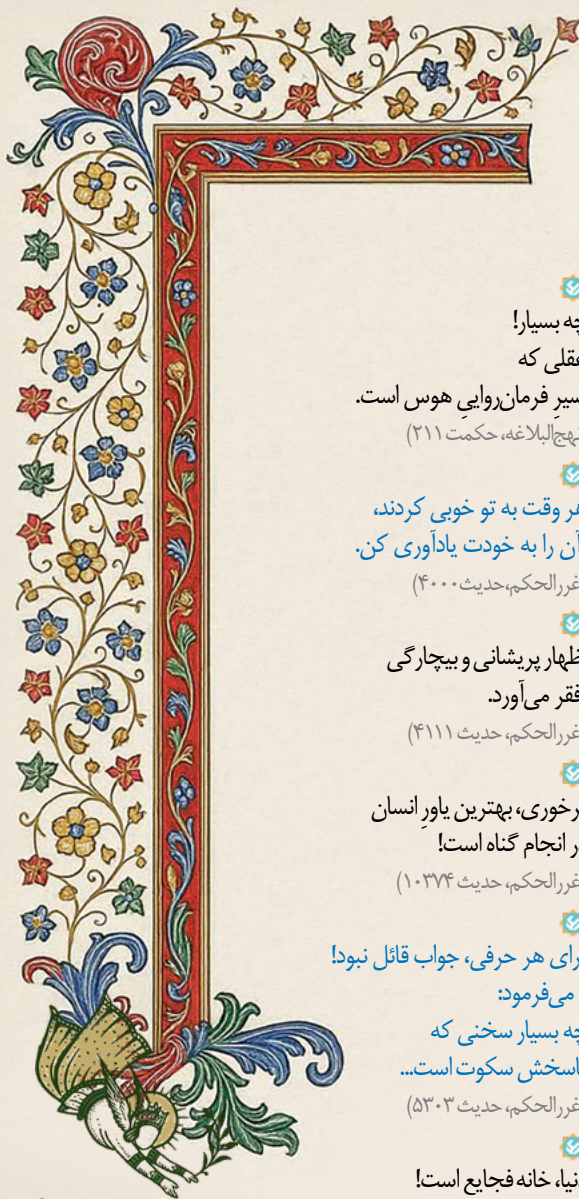 چه بسیار!
عقلی که
سیرِ فرمان‌رواییِ هوس است.
نهج‌البلاغه، حکمت ۲۱۱)
هر وقت به تو خوبی کردند،
آن را به خودت یادآوری کن.
غررالحکم،حدیث۴۰۰۰)
ظهار پریشانی و بیچارگی
فقر می‌آورد.
غررالحکم، حدیث ۴۱۱۱)
رخوری، بهترین یاورِ انسان
ر انجام گناه است!
غررالحکم، حدیث ۱۰۳۷۴)
رای هر حرفی، جواب قائل نبود!
می‌فرمود:
چه بسیار سخنی که
اسخش سکوت است...
غررالحکم، حدیث ۵۳۰۳)
نیا، خانه فجایع است!